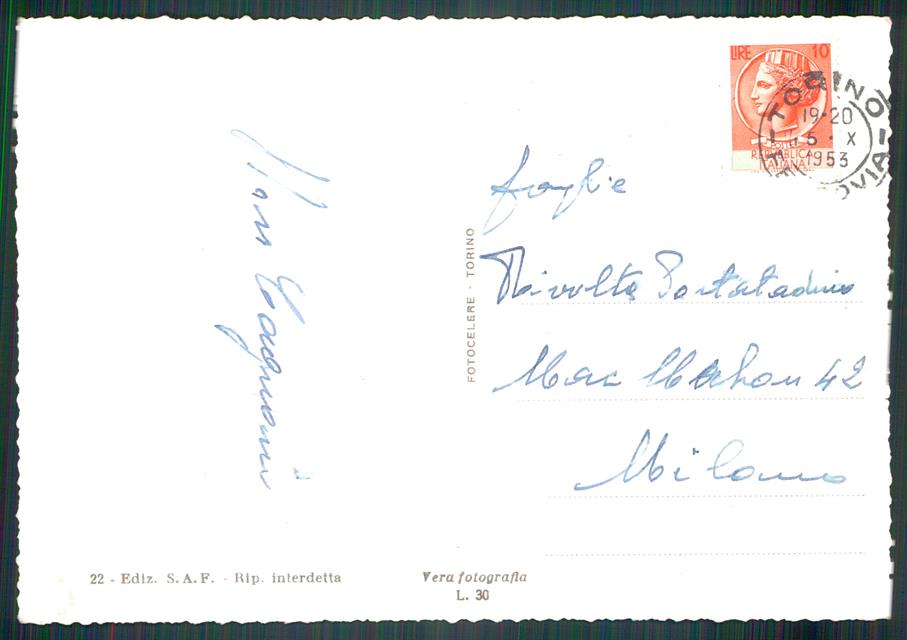 LIRE 10
POSTE
REPVBBLICA
ITALIANA
TORINO
19-20
5 · X
1953
foglie
Rivolta Portatadino
Mac Mahon 42
Milano
FOTOCELERE - TORINO
22 - Ediz. S.A.F. - Rip. interdetta
Vera fotografia
L. 30